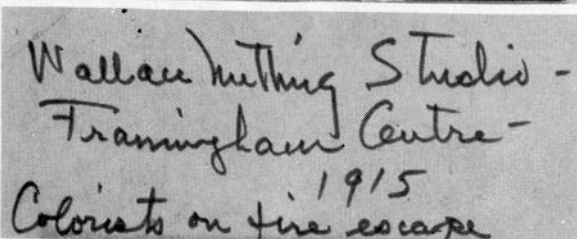 Wallace Nutting Studio -
Framingham Centre -
1915
Colorists on fire escape